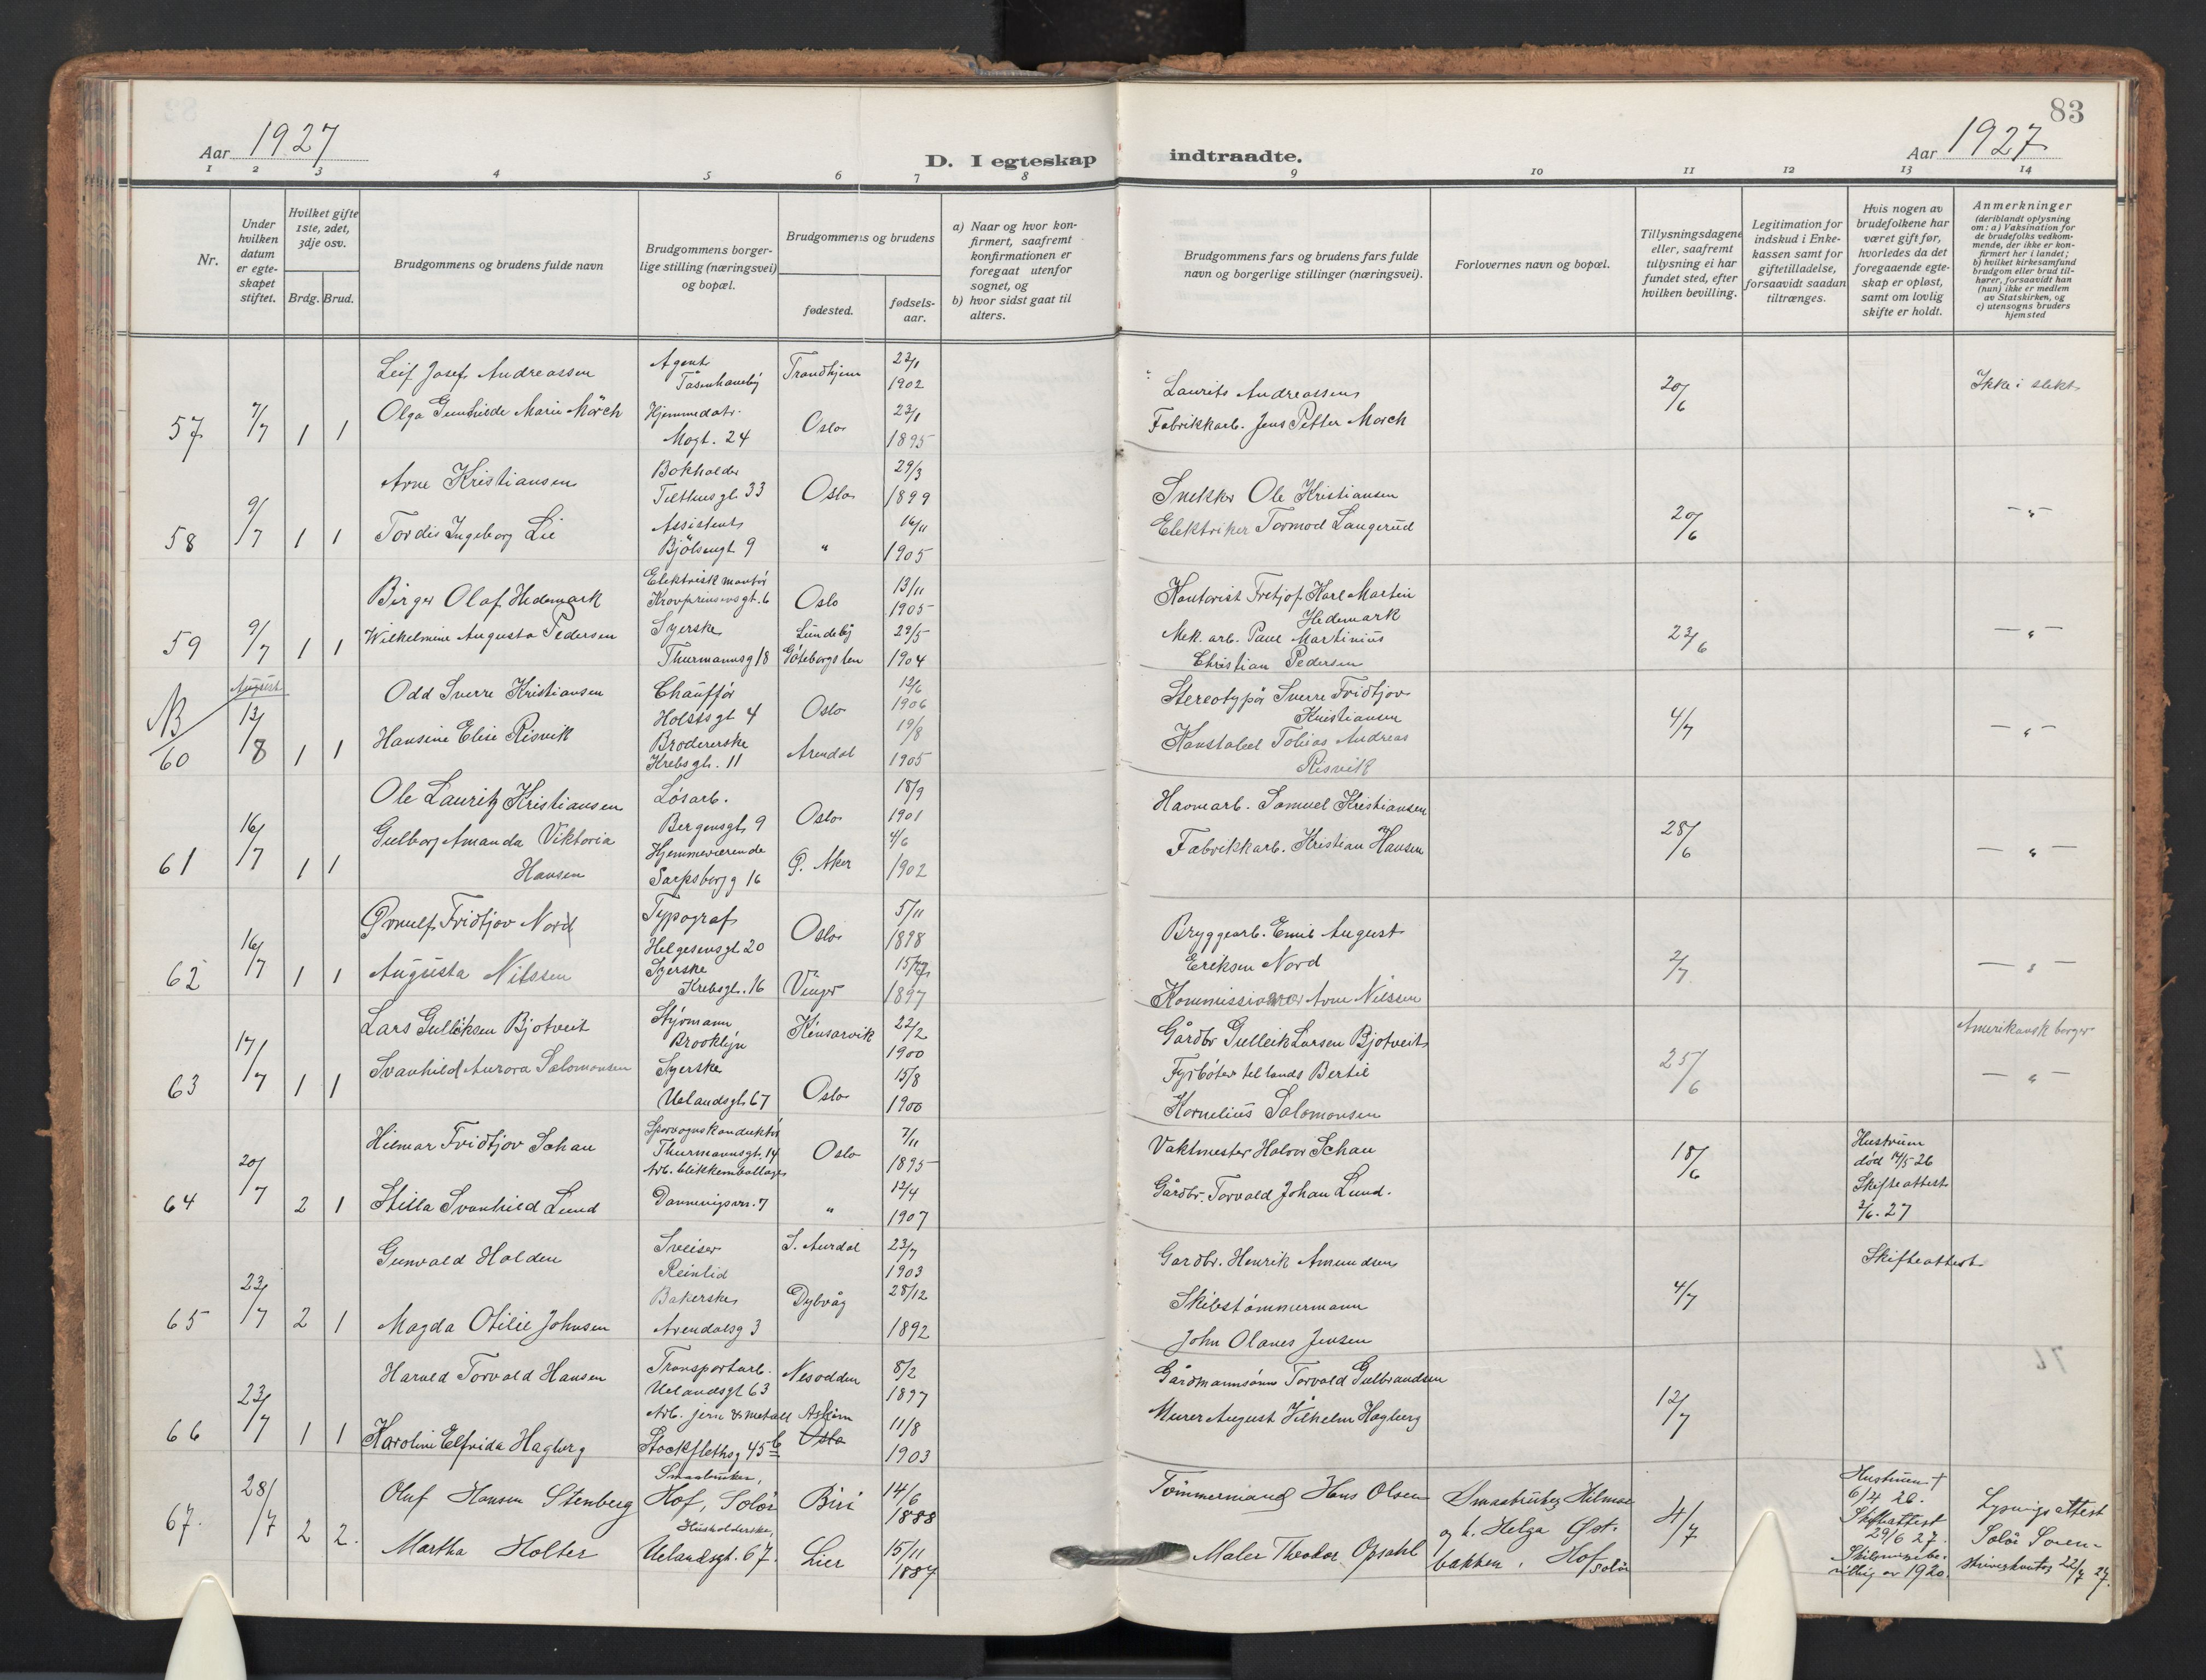 83
Aar 1927
D. I egteskap indtraadte.
Aar 1927
1 2 3 4 5 6 7 8 9 10 11 12 13 14
Nr.
Under
hvilken
datum
er egte-
skapet
stiftet.
Hvilket gifte
1ste, 2det,
3dje osv.
Brdg. Brud.
Brudgommens og brudens fulde navn
Brudgommens borger-
lige stilling (næringsvei)
og bopæl.
Brudgommens og brudens
fødested.
fødsels-
aar.
a) Naar og hvor kon-
firmert, saafremt
konfirmationen er
foregaat utenfor
sognet, og
b) hvor sidst gaat til
alters.
Brudgommens fars og brudens fars fulde
navn og borgerlige stillinger (næringsvei).
Forlovernes navn og bopæl.
Tillysningsdagene
eller, saafremt
tillysning ei har
fundet sted, efter
hvilken bevilling.
Legitimation for
indskud i Enke-
kassen samt for
giftetilladelse,
forsaavidt saadan
tiltrænges.
Hvis nogen av
brudefolkene har
været gift før,
hvorledes da det
foregaaende egte-
skap er opløst,
samt om lovlig
skifte er holdt.
Anmerkninger
(deriblandt oplysning
om: a) Vaksination for
de brudefolks vedkom-
mende, der ikke er kon-
firmert her i landet;
b) hvilket kirkesamfund
brudgom eller brud til-
hører, forsaavidt han
(hun) ikke er medlem
av Statskirken, og
c) utensogns bruders
hjemsted
57 7/7 1 1
Leif Josef Andreassen
Agent
Tåsenhaveby
Trondhjem
23/1
1902
Laurits Andreassen
20/6
Ikke i slekt
Olga Gunhilde Marie Mörch
Hjemmedatr.
Mogt. 24
Oslo
23/1
1895
Fabrikkarb. Jens Petter Morch
58 9/7 1 1
Arne Kristiansen
Bokholder
Tilthusgt. 33
Oslo
29/3
1899
Snekker Ole Kristiansen
20/6
— " —
Tordis Ingeborg Lie
Assistent
Bjölsengt 9
"
16/11
1905
Elektriker Tormod Langerud
59 9/7 1 1
Birger Olaf Hedemark
Elektrisk montör
Kronprinsensgt. 6
Oslo
13/11
1905
Kontorist Fretjof Karl Martin
Hedemark
23/6
— " —
Wilhelmine Augusta Pedersen
Syerske
Thurmannsg 18
Lundeby
Göteborgs len
29/5
1904
Mek. arb. Paul Martinius
Christian Pedersen
NB
60
August
13/8 1 1
Odd Sverre Kristiansen
Chauffør
Holstsgt 4
Oslo
12/6
1906
Stereotypör Sverre Fridtjov
Kristiansen
4/7
— " —
Hansine Elise Risvik
Brodererske
Krebsgt. 11
Arendal
19/8
1905
Konstabel Tobias Andreas
Risvik
61 16/7 1 1
Ole Lauritz Kristiansen
Løsarb.
Bergensgt. 9
Oslo
18/9
1901
Havnearb. Samuel Kristiansen
28/6
— " —
Gulborg Amanda Viktoria
Hansen
Hjemmeværende
Sarpsborg g 16
Ø. Aker
4/6
1902
Fabrikkarb. Kristian Hansen
62 16/7 1 1
Ørnulf Fridtjov Nord
Typograf
Helgesensgt 20
Oslo
5/11
1898
Bryggearb. Emil August
Eriksen Nord
2/7
— " —
Augusta Nilssen
Syerske
Krebsgt. 16
Vinger
1897
Kommissionær Arne Nilssen
63 17/7 1 1
Lars Gulleiksen Bjotveit
Styrmann
Brooklyn
Kinsarvik
22/2
1900
Gårdbr Gulleik Larsen Bjotveit
25/6
Amerikansk borger
Svanhild Aurora Salomonsen
Syerske
Uelandsgt. 67
Oslo
15/8
1900
Fyrböter til lands Bertil
Kornelius Salomonsen
— " —
64 20/7 2 1
Hilmar Fridtjov Schau
Sporvognskonduktör
Thurmannsgt. 14
Oslo
7/11
1895
Vaktmester Halvor Schau
18/6
Hustrum
död 14/5-26
Skifteattest
2/6. 27
Stilla Svanhild Lund
Arb. blikkemballage
Danmirgsvn. 7
"
12/4
1907
Gårdbr. Torvald Johan Lund.
65 23/7 2 1
Gunvald Holden
Sveiser
Reinlid
S. Aurdal
23/7
1903
Gardbr. Henrik Amundsen
4/7
Skifteattest
Magda Otilie Johnsen
Bakerske
Arendalsg 3
Dybvåg
28/12
1892
Skibstömmermann
John Olaves Jensen
66 23/7 1 1
Harald Torvald Hansen
Transportarb.
Uelandsgt 63
Nesodden
8/2
1897
Gårdmannsönn Torvald Gulbrandsen
12/7
Karoline Elfrida Hagberg
Arb. jern & metall
Stockflethsg 45 b
Askim
Oslo
11/8
1903
Murer August Vilhelm Hagberg
67. 28/7 2 2.
Oluf Hansen Stenberg
Smaabruker,
Hof, Solör
Biri
14/6
1888
Tömmermand Hans Olsen
Smaabruker Hilmar
og h. Helga Øst-
bakken, Hof
Solör
4/7
Hustruen †
6/4 26.
Skifteattest
29/6 27.
Skilsmissebe-
villig av 1920.
Lysningsattest
Solör Soren-
skriverkontor 22/7 27.
Martha Holter
Husholderske,
Uelandsgt. 67.
Lier
15/11
1887
Maler Theodor Opsahl